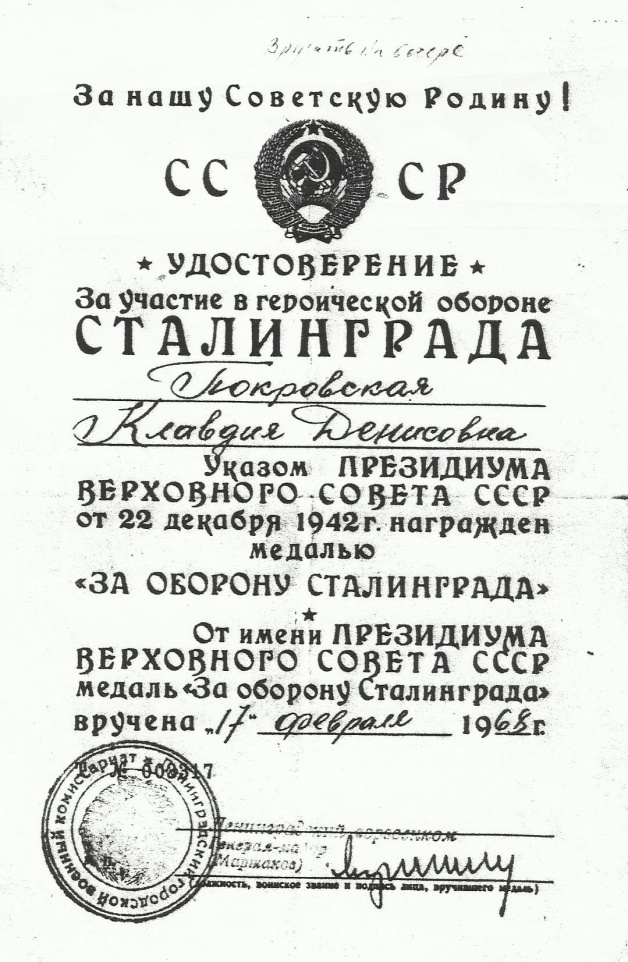 Вручить на вечере
За нашу Советскую Родину!
СССР
★ УДОСТОВЕРЕНИЕ ★
За участие в героической обороне
СТАЛИНГРАДА
Покровская
Клавдия Денисовна
Указом ПРЕЗИДИУМА
ВЕРХОВНОГО СОВЕТА СССР
от 22 декабря 1942 г. награжден
медалью
«ЗА ОБОРОНУ СТАЛИНГРАДА»
★
От имени ПРЕЗИДИУМА
ВЕРХОВНОГО СОВЕТА СССР
медаль «За оборону Сталинграда»
вручена „17“ февраля 1968 г.
№ 003317
Ленинградский горвоенком
Генерал-майор
(должность, воинское звание и подпись лица, вручившего медаль)
Ленинградский городской военный комиссариат